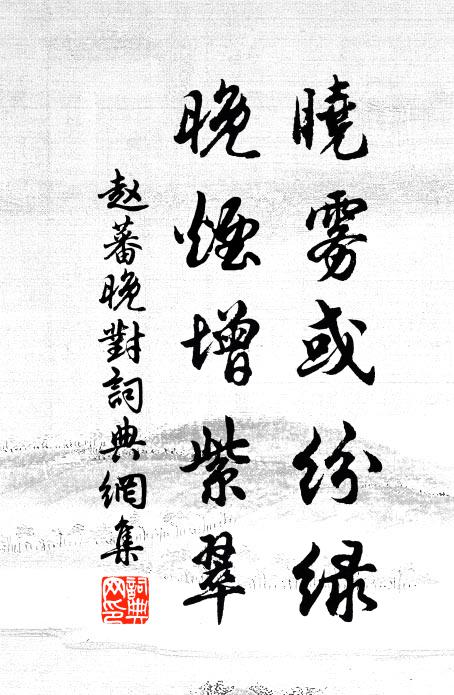 曉雾或纷緑
晚煙增紫翠
赵蕃晚對詞典網集
詞典网印